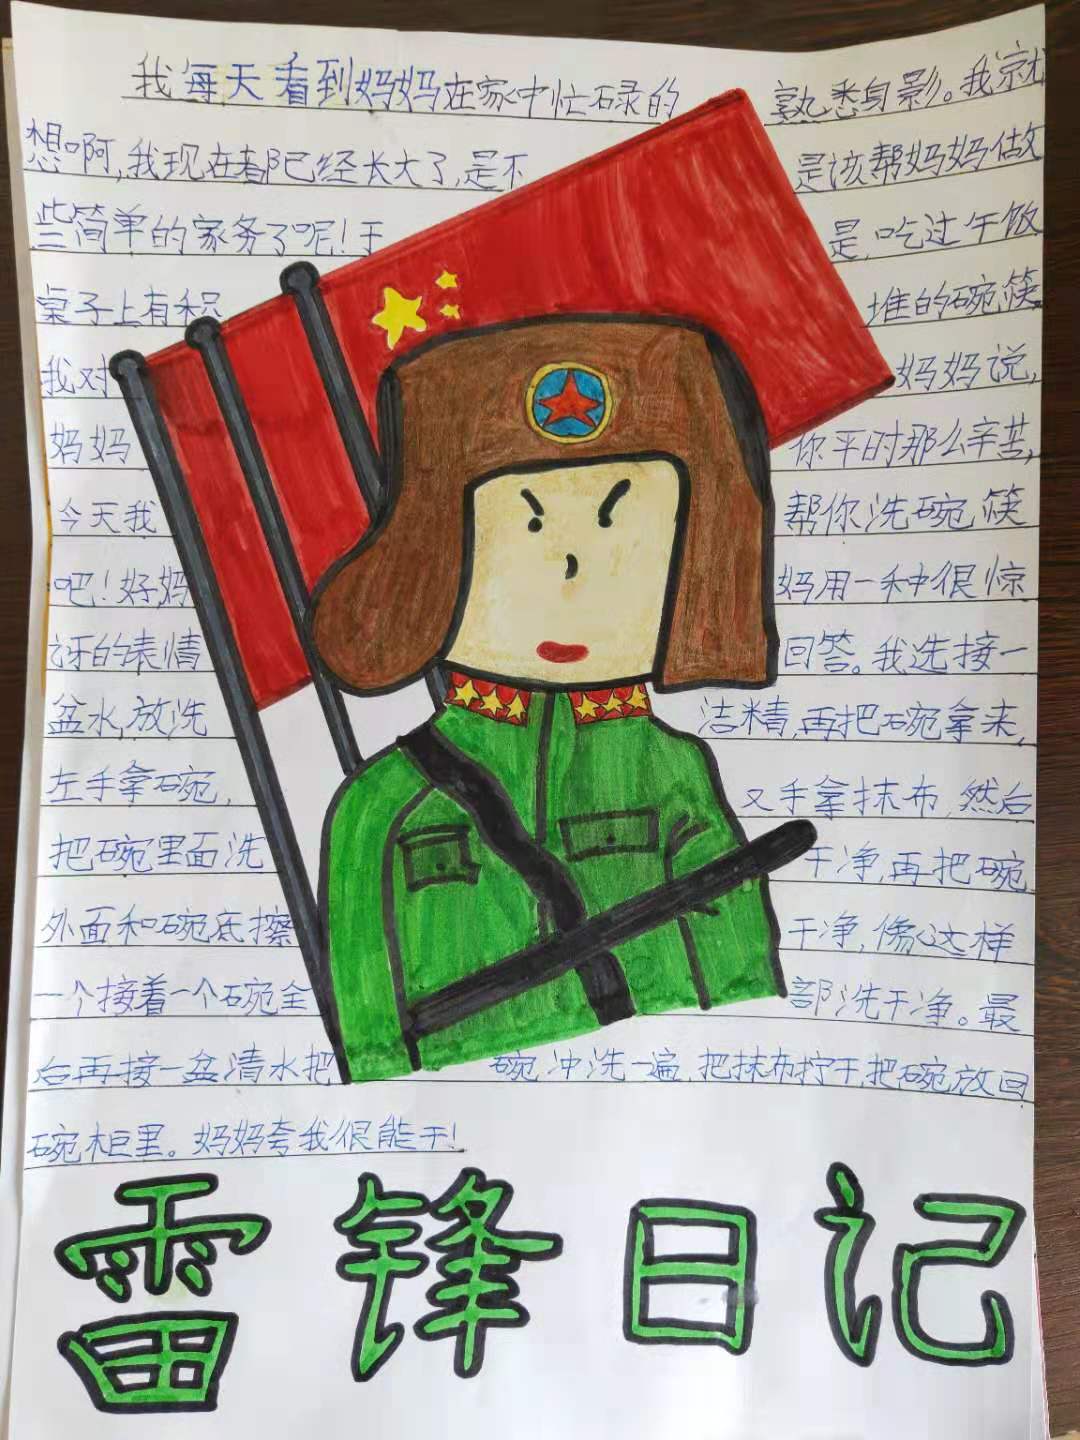 我每天看到妈妈在家中忙碌的熟悉身影。我就
想啊,我现在都已经长大了,是不是该帮妈妈做
些简单的家务了呢!于是,吃过午饭
桌子上有积堆的碗筷
我对妈妈说,
妈妈你平时那么辛苦,
今天我帮你洗碗筷
吧!好妈妈用一种很惊
讶的表情回答。我选接一
盆水,放洗洁精,再把碗拿来,
左手拿碗,又手拿抹布,然后
把碗里面洗干净,再把碗
外面和碗底擦干净,像这样
一个接着一个碗全部洗干净。最
后再接一盆清水把碗冲洗一遍,把抹布拧干,把碗放回
碗柜里。妈妈夸我很能干!
雷锋日记